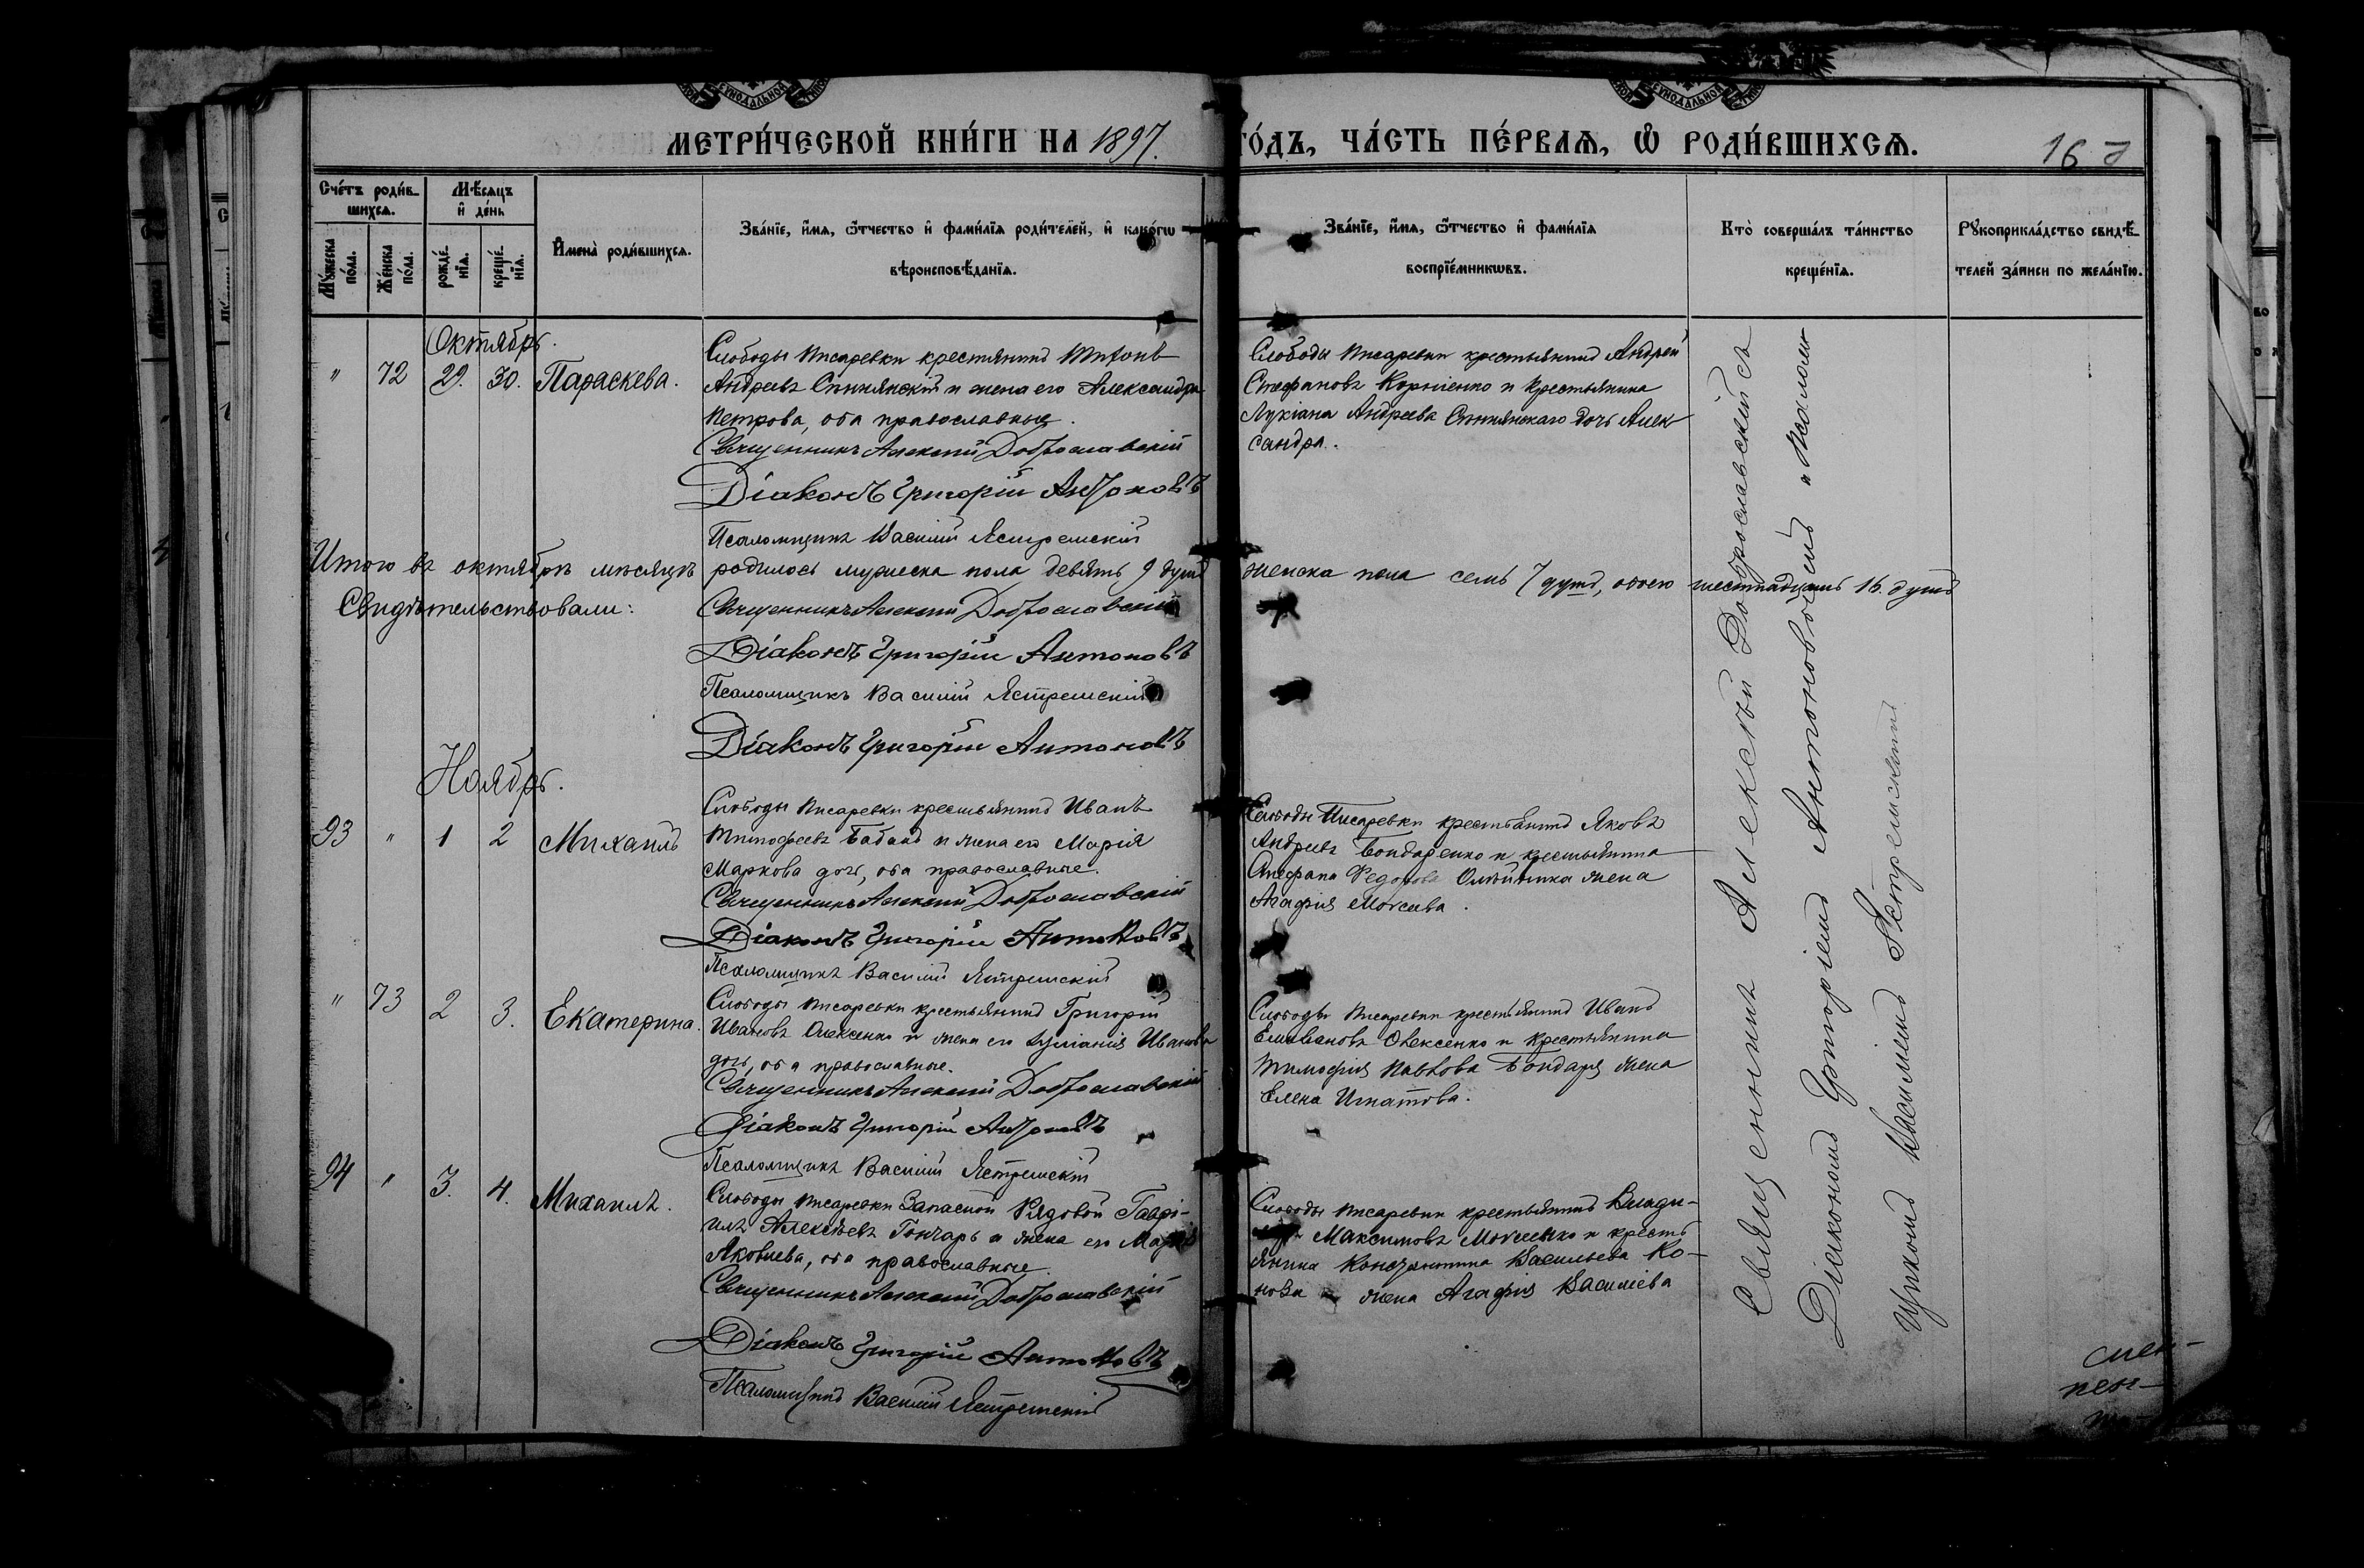 МЕТРИ́ЧЕСКОЙ КНИ́ГИ НА 1897.
ГО́ДЪ, ЧА́СТЬ ПЕ́РВАЯ, Ѡ РОДИ́ВШИХСЯ.
16
Сче́тъ роди́в-
шихся.
Мѣ́сяцъ
и де́нь
Му́жеска
по́ла.
Же́нска
по́ла.
рожде́-
нія.
креще́-
нія.
Имена̀ роди́вшихся.
Зва́ніе, и́мя, ѻ́тчество и фами́лія роди́телей, и како́гѡ
вѣроисповѣ́данія.
Зва́ніе, и́мя, ѻ́тчество и фами́лія
воспріе́мникѡвъ.
Кто̀ соверша́лъ та́инство
креще́нія.
Рꙋкоприкла́дство свидѣ́-
телей за́писи по жела́нію.
Октябрь.
" 72 29. 30. Параскева.
Слободы Писаревки крестьянинъ
Андреевъ и жена его Александра
Петрова, оба православные.
Священникъ Алексій Доброславскій
Діаконъ Григорій Антоновъ
Псаломщикъ Василій Ястремскій
Слободы Писаревки крестьянинъ Андрей
Стефановъ Корніенко и крестьянина
Лукіана Андреева дочь Алек-
сандра.
Итого въ октябрѣ мѣсяцѣ родилось мужеска пола девять 9 душъ женска пола семь 7 душъ, обоего шестнадцать 16. душъ
Свидѣтельствовали:
Священникъ Алексій Доброславскій
Діаконъ Григорій Антоновъ
Псаломщикъ Василій Ястремскій
Діаконъ Григорій Антоновъ
Ноябрь.
93 " 1 2 Михаилъ
Слободы Писаревки крестьянинъ Иванъ
Тимофеевъ Бабакъ и жена его Марія
Маркова дочь, оба православные.
Священникъ Алексій Доброславскій
Діаконъ Григорій Антоновъ
Псаломщикъ Василій Ястремскій
Слободы Писаревки крестьянинъ Яковъ
Андреевъ Бондаренко и крестьянина
Стефана Федорова Олейника жена
Агафія Моисеева.
" 73 2 3. Екатерина.
Слободы Писаревки крестьянинъ Григорій
Ивановъ Олексенко и жена его Іуліанія Иванова
дочь, оба православные.
Священникъ Алексій Доброславскій
Діаконъ Григорій Антоновъ
Псаломщикъ Василій Ястремскій
Слободы Писаревки крестьянинъ Иванъ
Емиліановъ Олексенко и крестьянина
Тимофія Павлова Бондаря жена
Елена Игнатова.
94 " 3. 4. Михаилъ.
Слободы Писаревки Запасной Рядовой Гаврі-
илъ Алексѣевъ Гончарь и жена его Марія
Яковлева, оба православные.
Священникъ Алексій Доброславскій
Діаконъ Григорій Антоновъ
Псаломщикъ Василій Ястремскій
Слободы Писаревки крестьянинъ Влади-
Максимовъ Моисеенко и кресть
янина Константина Васильева Ко-
жена Агафія Василіева
Священникъ Алексѣй Доброславскій съ
Діакономъ Григоріемъ Антоновымъ и Псалом-
щикомъ Василіемъ Ястремскимъ